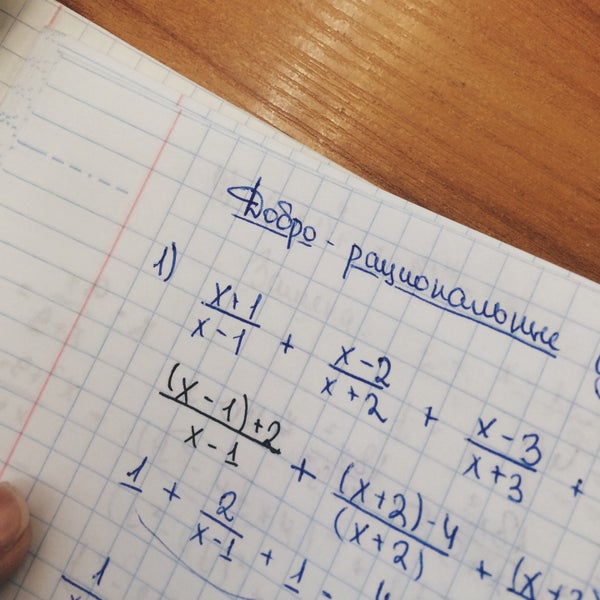 Добро - рациональные (
1)
x+1/x-1 + x-2/x+2 + x-3/x+3 +
(x-1)+2/x-1 + (x+2)-4/(x+2) + (x+3)
1 + 2/x-1 + 1 -
1